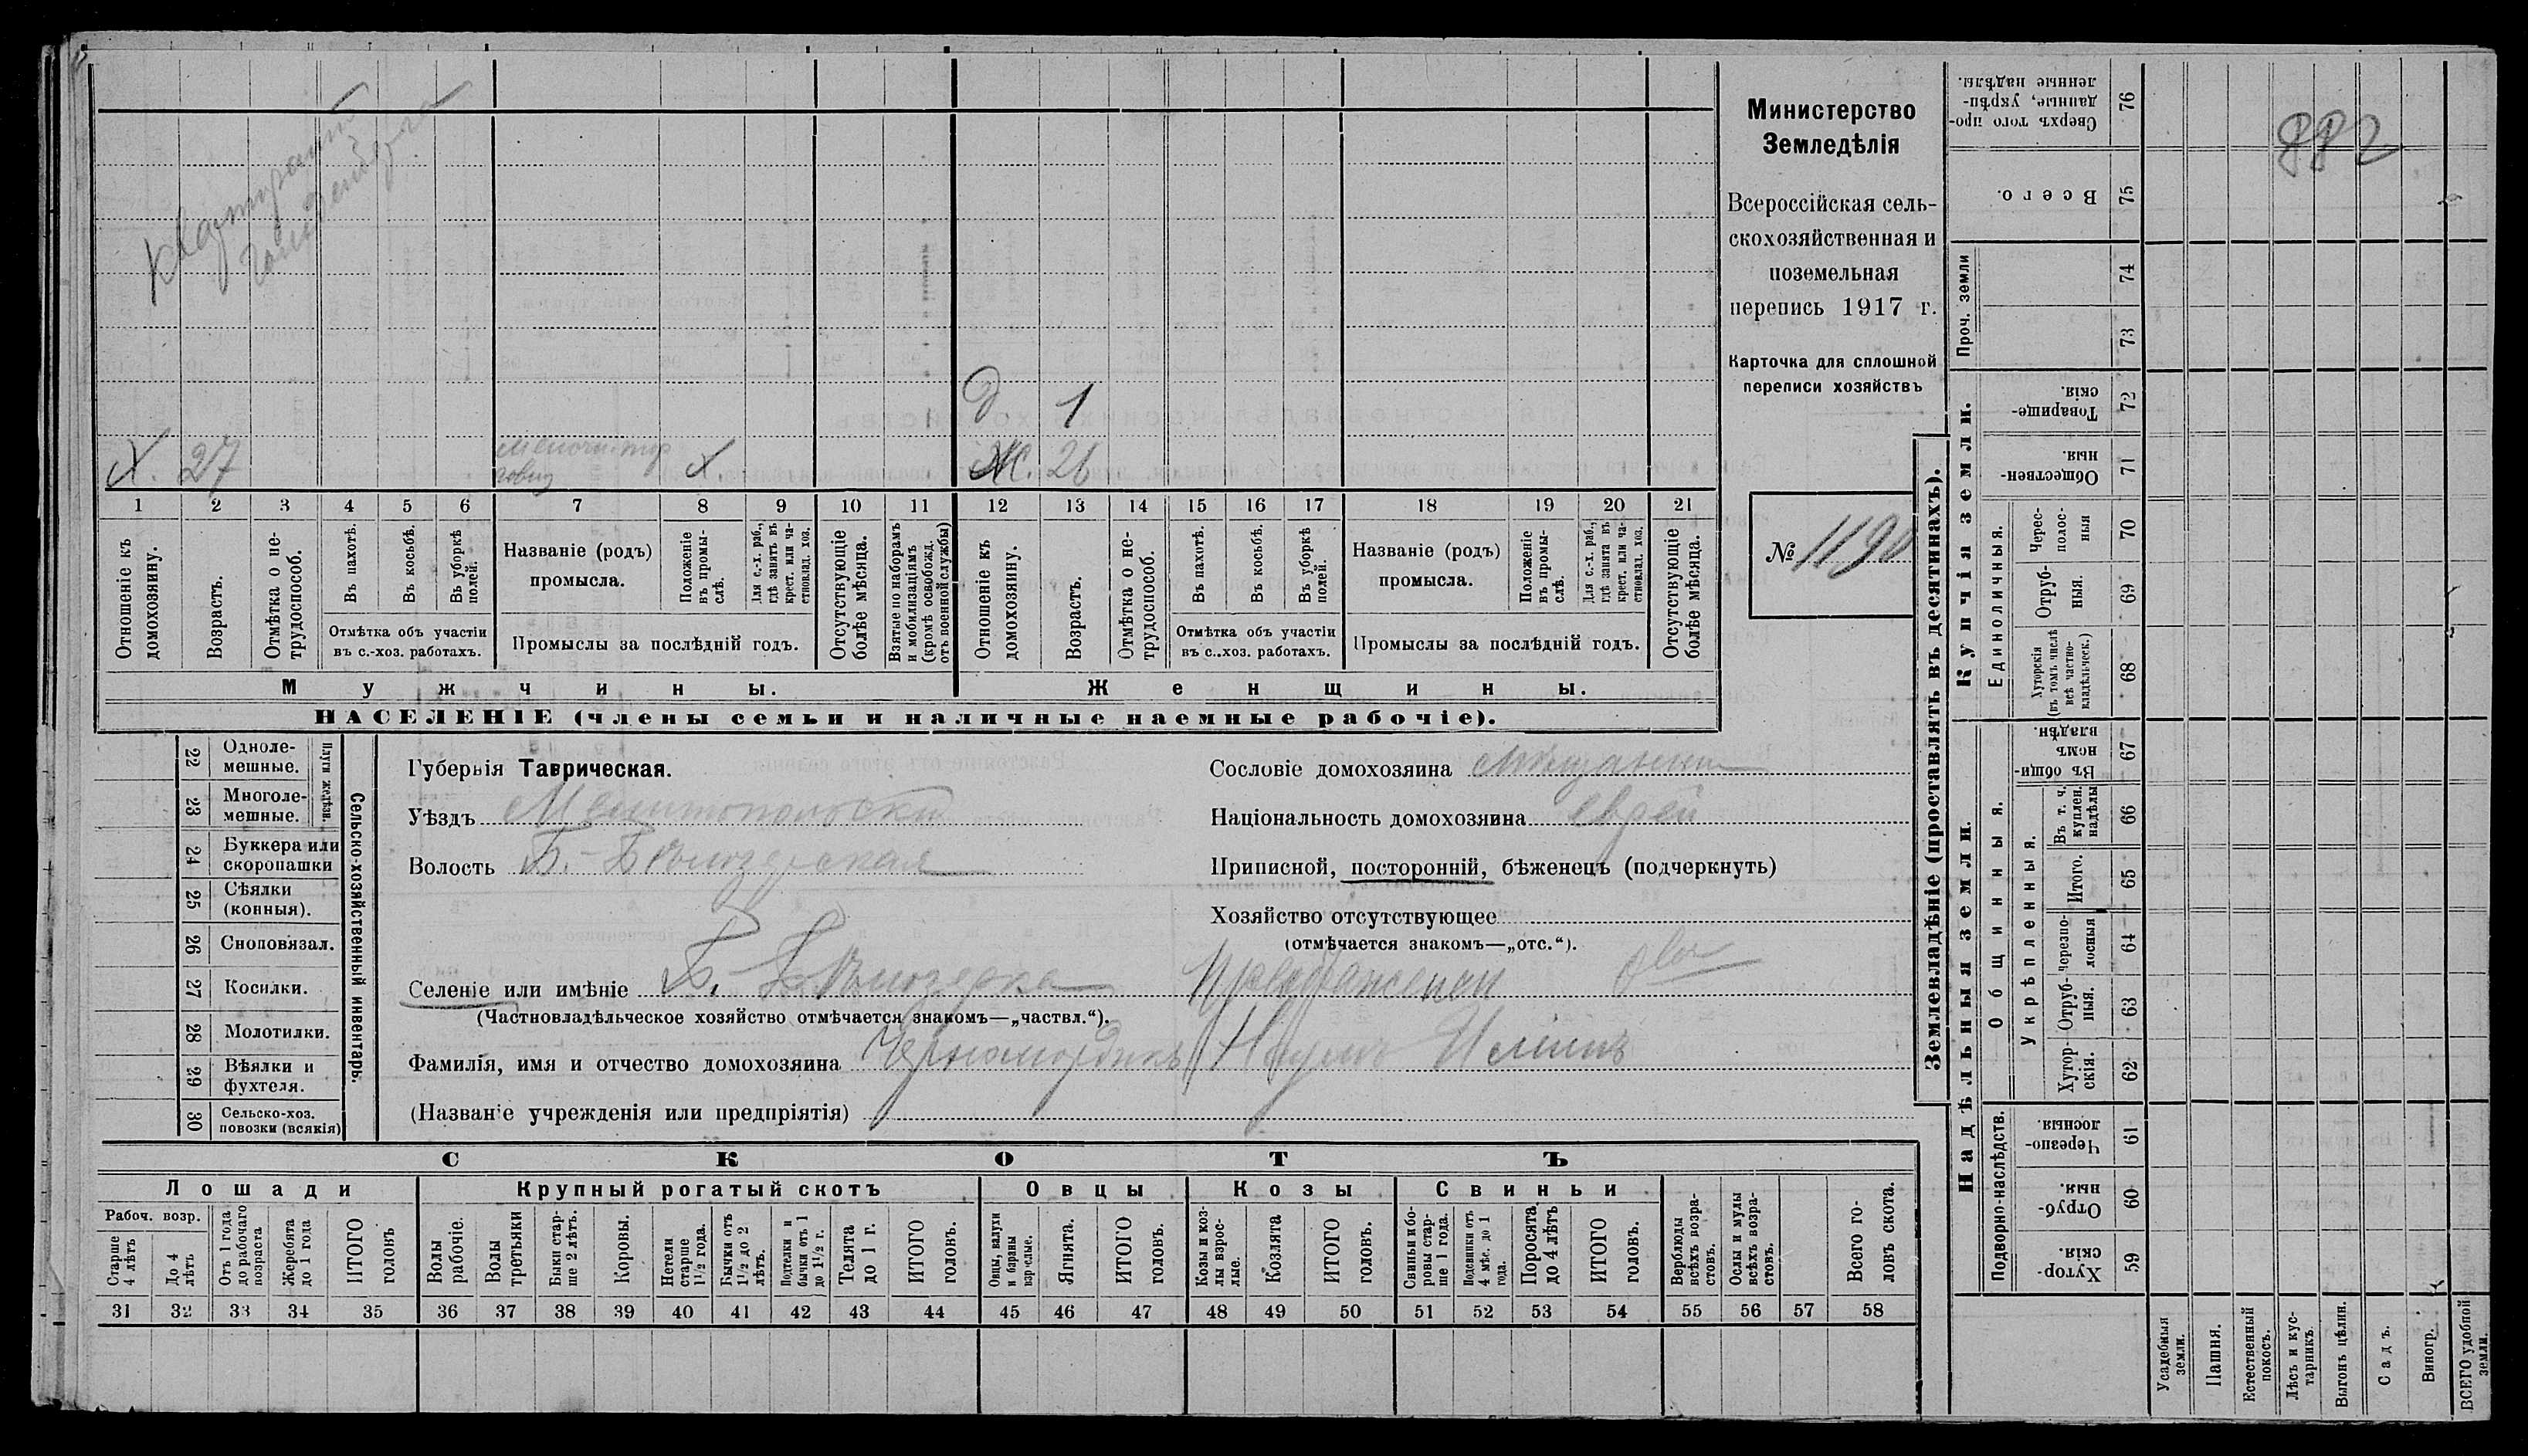 882
Квартирант
Министерство
Земледѣлія
Всероссійская сель-
скохозяйственная и
поземельная
перепись 1917 г.
Карточка для сплошной
переписи хозяйствъ
№ 1190
Д 1
Х. 27 Х. Ж. 26
1 2 3 4 5 6 7 8 9 10 11 12 13 14 15 16 17 18 19 20 21
Отношеніе къ домохозяину.
Возрастъ.
Отмѣтка о не-трудоспособ.
Въ пахотѣ.
Въ косьбѣ.
Въ уборкѣ полей.
Отмѣтка объ участіи
въ с.-хоз. работахъ.
Названіе (родъ)
промысла.
Положеніе въ промы-слѣ.
Для с.-х. раб., гдѣ занятъ въ крест. или ча-стновлад. хоз.
Промыслы за послѣдній годъ.
Отсутствующіе болѣе мѣсяца.
Взятые по наборамъ и мобилизаціямъ (кромѣ освобожд. отъ военной службы)
Отношеніе къ домохозяину.
Возрастъ.
Отмѣтка о не-трудоспособ.
Въ пахотѣ.
Въ косьбѣ.
Въ уборкѣ полей.
Отмѣтка объ участіи
въ с..хоз. работахъ.
Названіе (родъ)
промысла.
Положеніе въ промы-слѣ.
Для с.-х. раб., гдѣ занята въ крест. или ча-стновлад. хоз.
Промыслы за послѣдній годъ.
Отсутствующіе болѣе мѣсяца.
Мужчины. Женщины.
НАСЕЛЕНІЕ (члены семьи и наличные наемные рабочіе).
22 Одноле-мешные.
23 Многоле-мешные.
Плуги желѣзн.
24 Буккера или скоропашки
25 Сѣялки (конныя).
26 Сноповязал.
27 Косилки.
28 Молотилки.
29 Вѣялки и фухтеля.
30 Сельско-хоз. повозки (всякія)
Сельско-хозяйственный инвентарь.
Губернія Таврическая.
Уѣздъ Мелитопольскій
Волость Б.-Бѣлозерская
Селеніе или имѣніе Б. Бѣлозерка
(Частновладѣльческое хозяйство отмѣчается знакомъ—„частвл.“).
Фамилія, имя и отчество домохозяина Черномордикъ Наумъ
(Названіе учрежденія или предпріятія)
Сословіе домохозяина Мѣщанинъ
Національность домохозяина еврей
Приписной, посторонній, бѣженецъ (подчеркнуть)
Хозяйство отсутствующее
(отмѣчается знакомъ—„отс.“).
СКОТЪ
Лошади Крупный рогатый скотъ Овцы Козы Свиньи
Рабоч. возр.
Старше 4 лѣтъ
До 4 лѣтъ
Отъ 1 года до рабочаго возраста
Жеребята до 1 года
ИТОГО головъ
Волы рабочіе.
Волы третьяки
Быки стар-ше 2 лѣтъ.
Коровы.
Нетели старше 1 1/2 года.
Бычки отъ 1 1/2 до 2 лѣтъ.
Подтелки и бычки отъ 1 до 1 1/2 г.
Телята до 1 г.
ИТОГО головъ.
Овцы, валухи и бараны взрослые.
Ягнята.
ИТОГО головъ.
Козы и коз-лы взрос-лые.
Козлята
ИТОГО головъ.
Свиньи и бо-ровы стар-ше 1 года.
Подсвинки отъ 4 мѣс. до 1 года.
Поросята до 4 лѣтъ
ИТОГО головъ.
Верблюды всѣхъ возра-стовъ.
Ослы и мулы всѣхъ возра-стовъ.
Всего го-ловъ скота.
31 32 33 34 35 36 37 38 39 40 41 42 43 44 45 46 47 48 49 50 51 52 53 54 55 56 57 58
Землевладѣніе (проставлять въ десятинахъ).
Купчія земли.
Надѣльныя земли.
Сверхъ того про-данные, укрѣп-ленные надѣлы. 76
Всего. 75
Проч. земли 74 73
Товарище-скія. 72
Обществен-ныя. 71
Единоличныя.
Черес-полос-ныя 70
Отруб-ныя. 69
Хуторскія (въ томъ числѣ всѣ частно-владѣльческ.) 68
Общинныя.
Въ общи-номъ владѣн. 67
Укрѣпленныя.
Въ т. ч. куплен. надѣлы 66
Итого. 65
Черезпо-лосныя 64
Отруб-ныя. 63
Хутор-скія. 62
Подворно-наслѣдств.
Черезпо-лосныя. 61
Отруб-ныя. 60
Хутор-скія. 59
Усадебныя земли.
Пашня.
Естественный покосъ.
Лѣсъ и кус-тарникъ.
Выгонъ цѣлин.
Садъ.
Виногр.
ВСЕГО удобной земли.